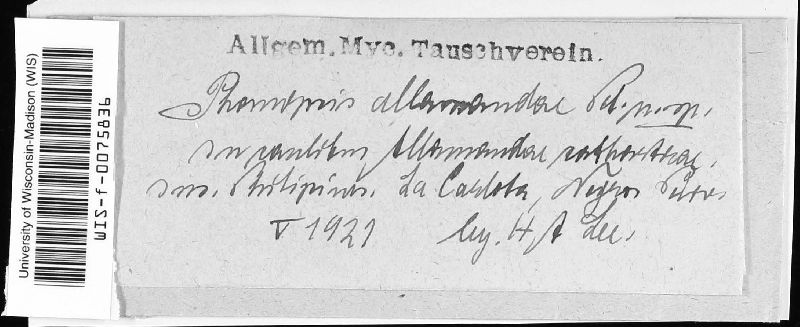 University of Wisconsin-Madison (WIS)
WIS-f-0075836
Allgem. Myc. Tauschverein.
Phomopsis allamandae Pet. n. sp.
In caulibus Allamandae catharticae.
Ins. Philipinas. La Carlota, Negros
V 1921 leg. H A Lee.